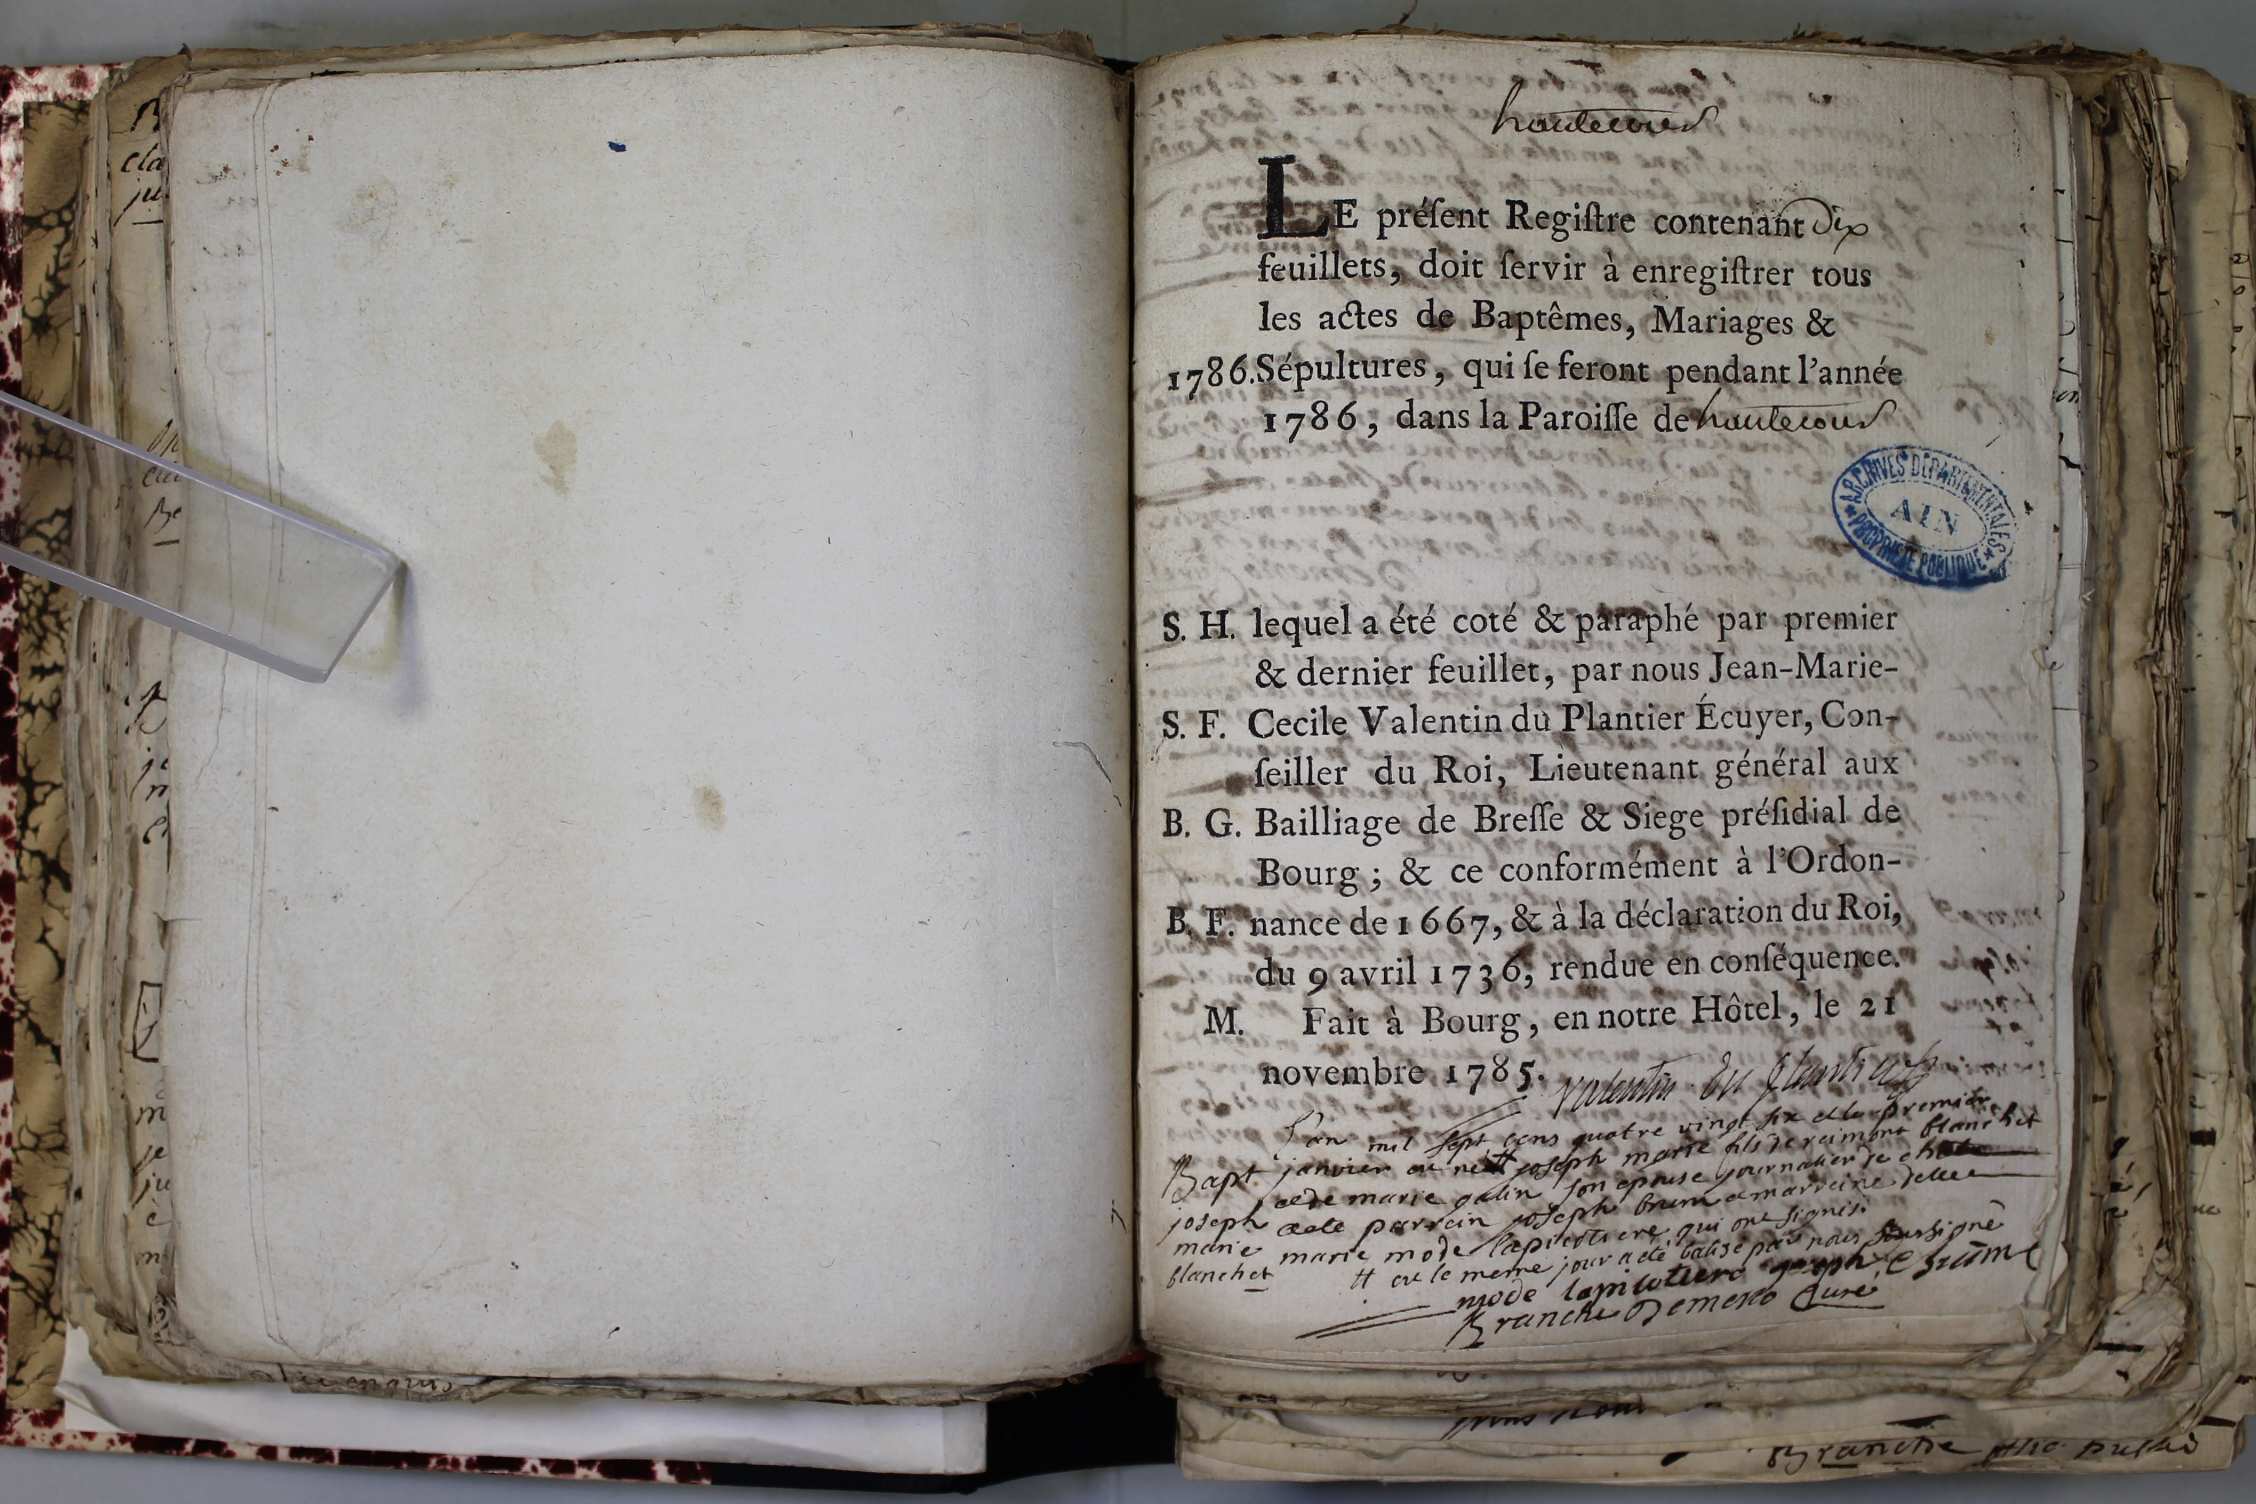 hautecour
LE préſent Regiſtre contenant dix
feuillets, doit ſervir à enregiſtrer tous
les actes de Baptêmes, Mariages &
1786. Sépultures, qui ſe feront pendant l'année
1786, dans la Paroiſſe de hautecour
ARCHIVES DÉPARTEMENTALES
AIN
PROPRIÉTÉ PUBLIQUE
S. H. lequel a été coté & paraphé par premier
& dernier feuillet, par nous Jean-Marie-
S. F. Cecile Valentin du Plantier Écuyer, Con-
ſeiller du Roi, Lieutenant général aux
B. G. Bailliage de Breſſe & Siege préſidial de
Bourg ; & ce conformément à l'Ordon-
B. F. nance de 1667, & à la déclaration du Roi,
du 9 avril 1736, rendue en conſéquence.
M. Fait à Bourg, en notre Hôtel, le 21
novembre 1785.
Valentin du plantier
L'an mil sept cens quatre vingt six et le premier
Bapt janvier est né # joseph marie fils de reimont blanchet
joseph et de marie galin son epouse journalier de
marie a eté parrein joseph brum et marreine delle
blanchet marie mode lapicotiere qui ont signés
# et le meme jour a eté batisé par nous soussigné
mode lapicotiere joseph brum
Branche Demero Curé
Branche